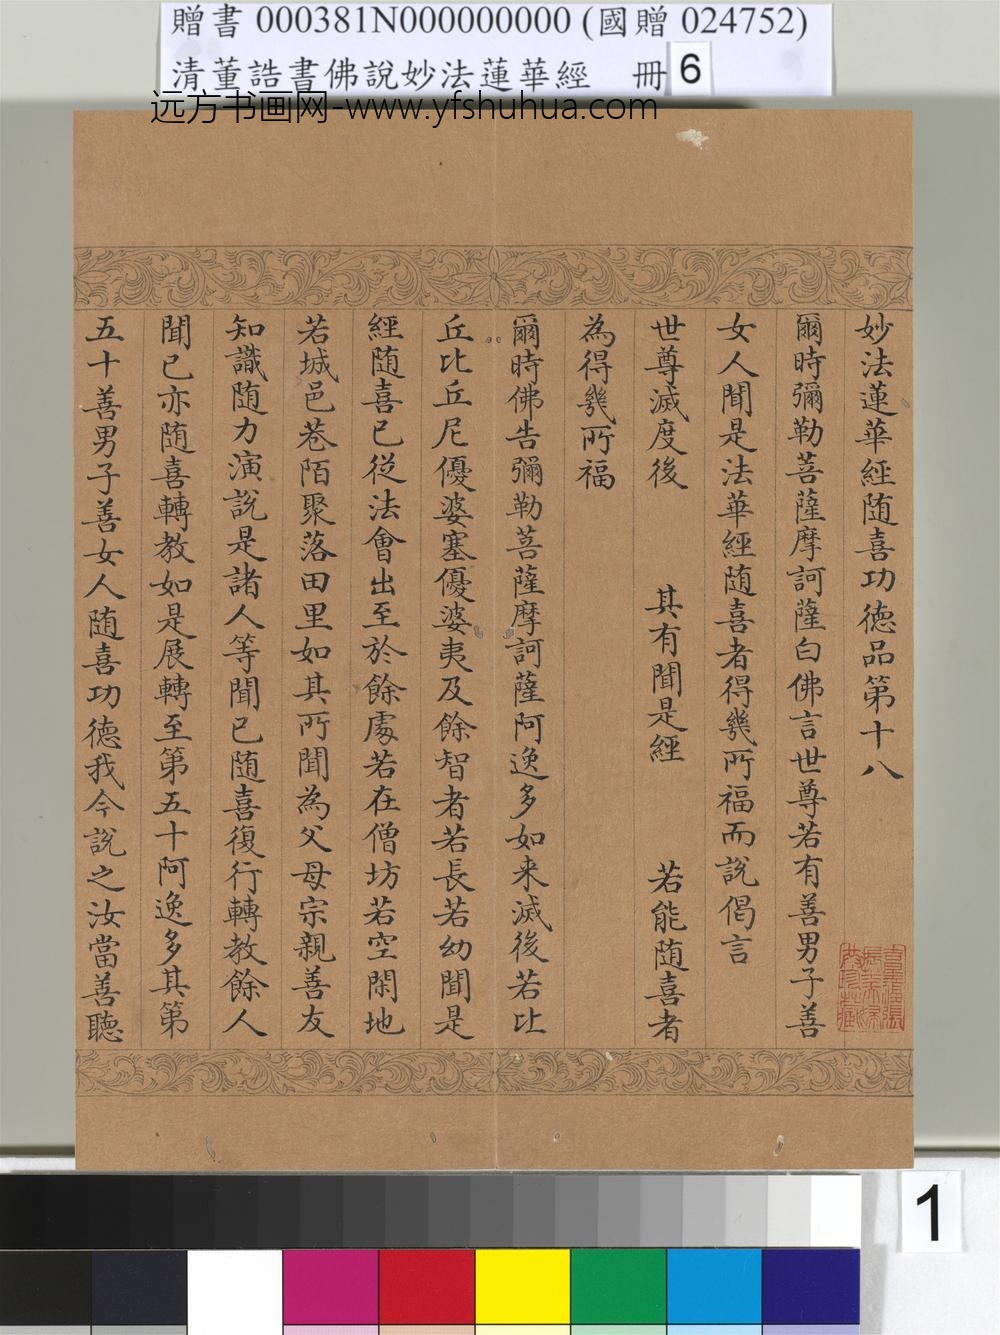 贈書 000381N000000000 (國贈 024752)
清董誥書佛說妙法蓮華經 冊 6
远方书画网-www.yfshuhua.com
妙法蓮華經随喜功徳品第十八
爾時彌勒菩薩摩訶薩白佛言世尊若有善男子善
女人聞是法華經随喜者得幾所福而說偈言
世尊滅度後 其有聞是經 若能随喜者
為得幾所福
爾時佛告彌勒菩薩摩訶薩阿逸多如来滅後若比
丘比丘尼優婆塞優婆夷及餘智者若長若幼聞是
經随喜已從法會出至於餘處若在僧坊若空閑地
若城邑巷陌聚落田里如其所聞為父母宗親善友
知識随力演說是諸人等聞已随喜復行轉教餘人
聞已亦随喜轉教如是展轉至第五十阿逸多其第
五十善男子善女人随喜功德我今說之汝當善聽
1